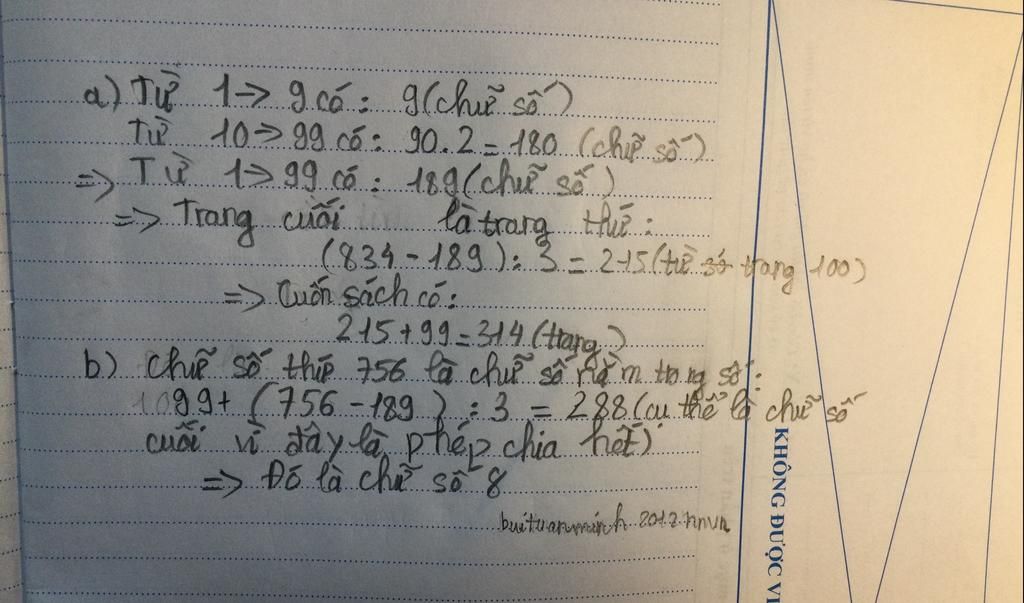 a) Từ 1 -> 9 có: 9 (chữ số)
Từ 10 -> 99 có: 90.2 = 180 (chữ số)
=> Từ 1 -> 99 có: 189 (chữ số)
=> Trang cuối là trang thứ:
(834 - 189) : 3 = 215 (từ trang 100)
=> Cuốn sách có:
215 + 99 = 314 (trang)
b) Chữ số thứ 756 là chữ số nằm trong số:
99 + (756 - 189) : 3 = 288 (cụ thể là chữ số
cuối vì đây là phép chia hết)
=> Đó là chữ số 8
buituanminh 2012 nnvn
KHÔNG ĐƯỢC VI